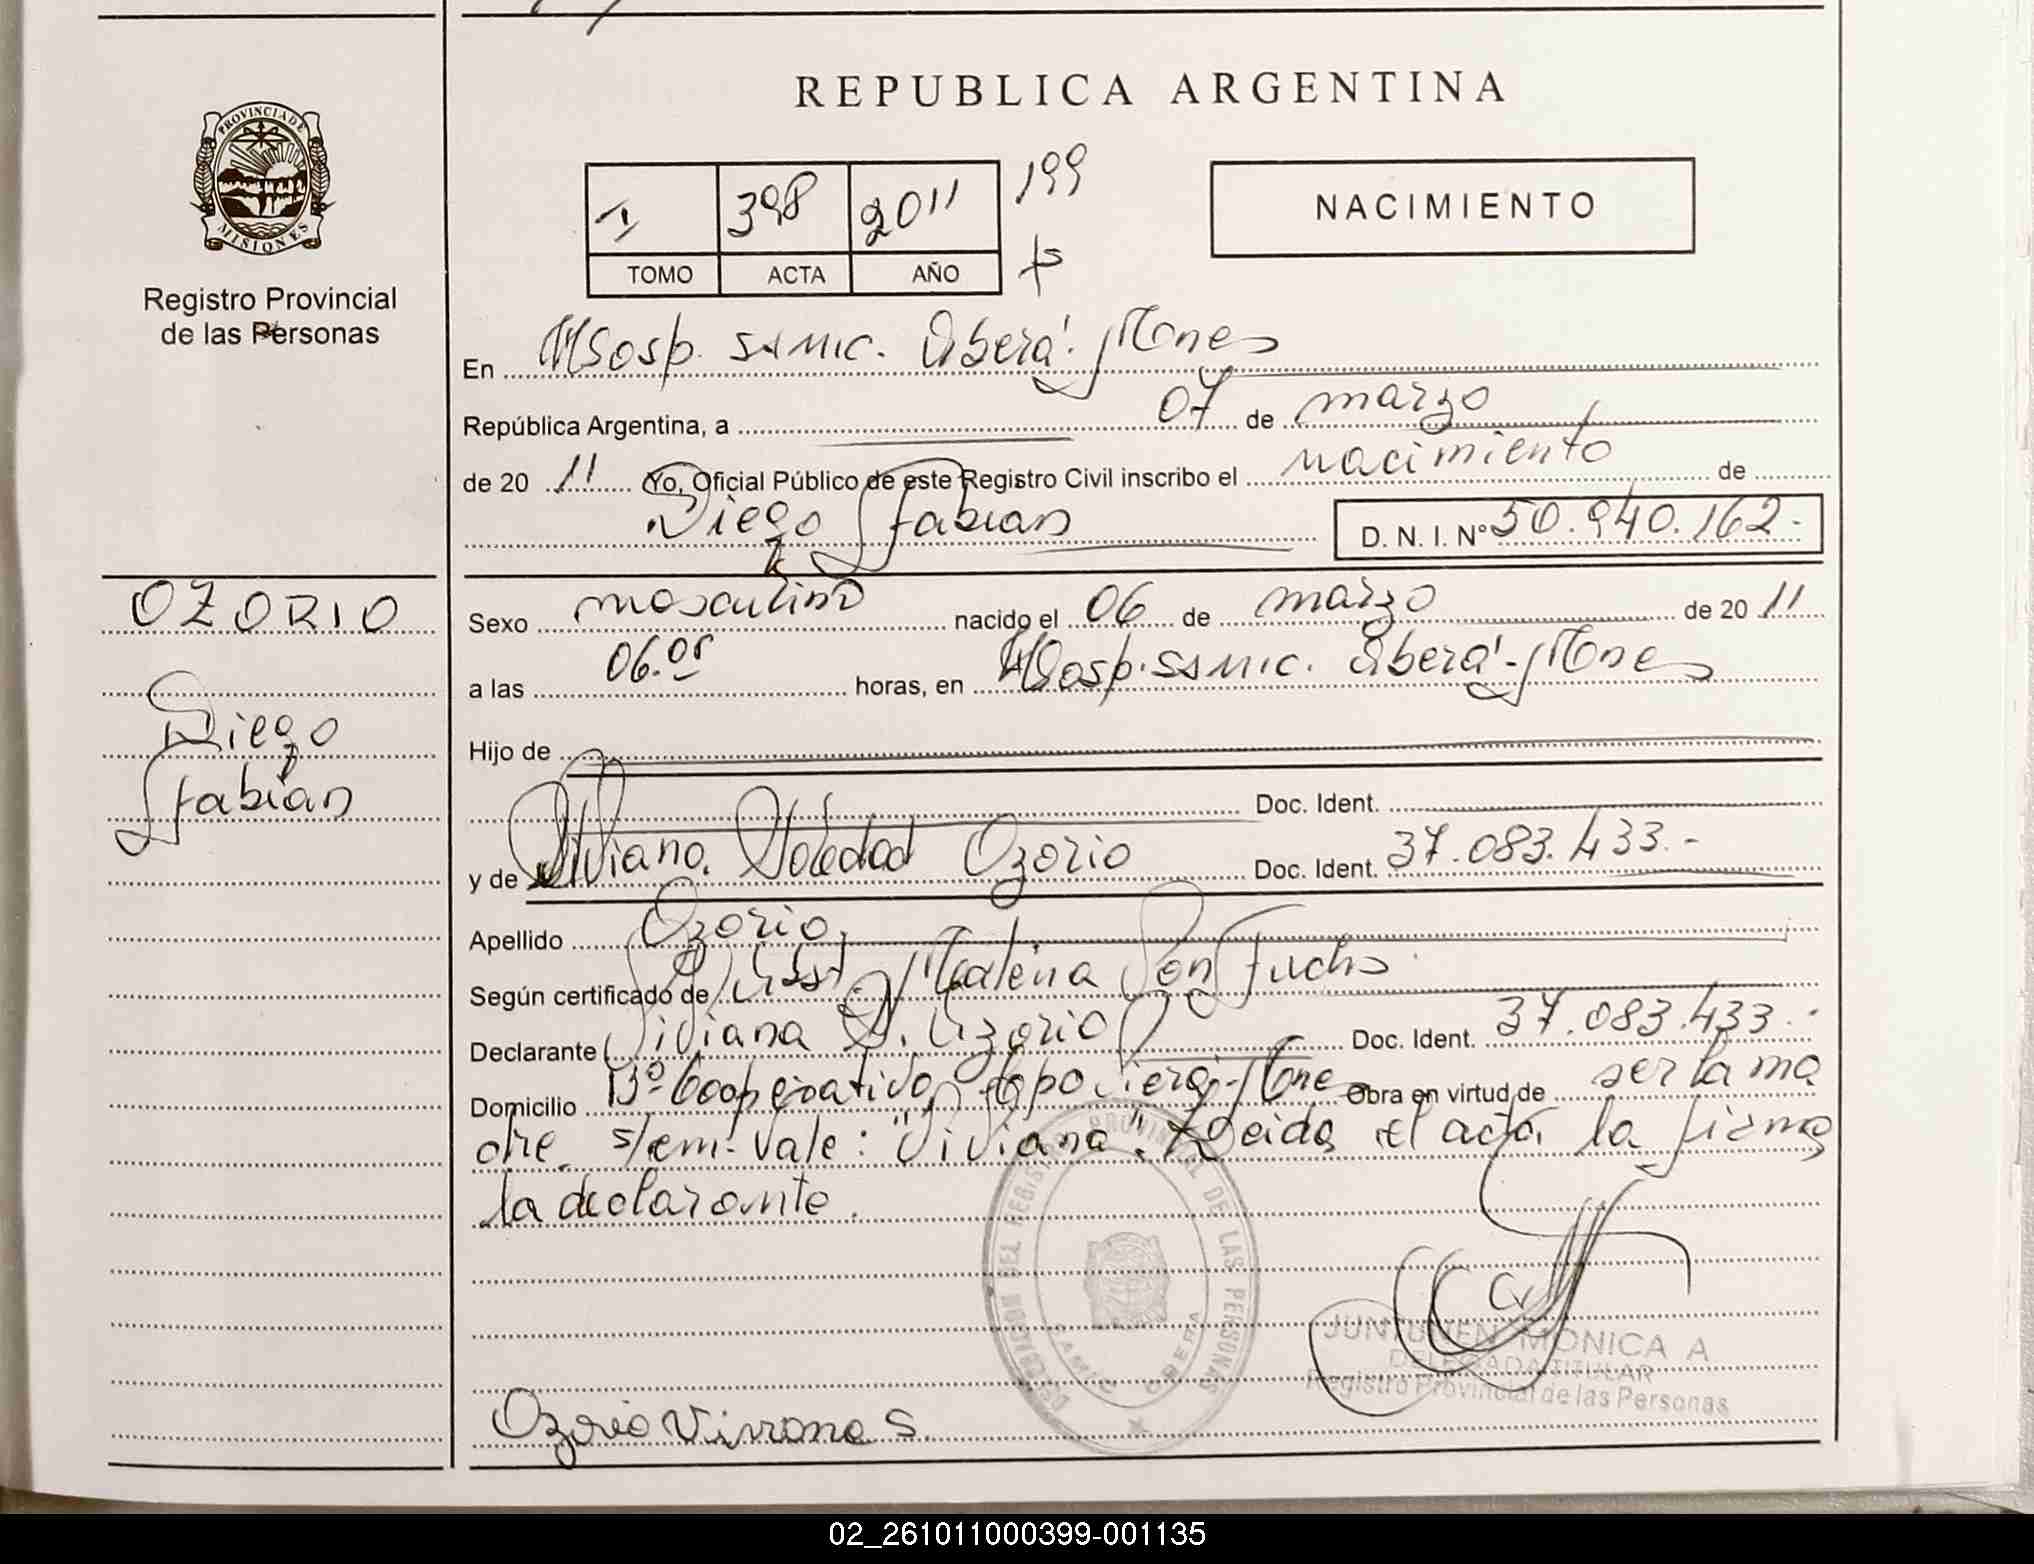 REPUBLICA ARGENTINA
PROVINCIA DE
MISIONES
Registro Provincial
de las Personas
I 398 2011 199
TOMO ACTA AÑO
NACIMIENTO
En Hosp. SAMIC. Oberá. Mnes
República Argentina, a 07 de marzo
de 20 11 Yo, Oficial Público de este Registro Civil inscribo el nacimiento de
Diego Fabian D. N. I. Nº 50.940.162.-
OZORIO
Diego
Fabian
Sexo masculino nacido el 06 de marzo de 20 11
a las 06.05 horas, en Hosp. SAMIC. Oberá-Mnes
Hijo de
Doc. Ident.
y de Viviana Soledad Ozorio Doc. Ident. 37.083.433.-
Apellido Ozorio
Según certificado de Malena Von Fuchs
Declarante Viviana S. Ozorio Doc. Ident. 37.083.433.-
Domicilio Bº Cooperativa Obra en virtud de ser la ma
dre. s/em. Vale: "Viviana". Leida el acta la firma
la declarante.
DELEGACION DEL REGISTRO PROVINCIAL DE LAS PERSONAS
SAMIC OBERA
JUNTUNEN MONICA A
DELEGADA TITULAR
Registro Provincial de las Personas
Ozorio Viviana S.
02_261011000399-001135